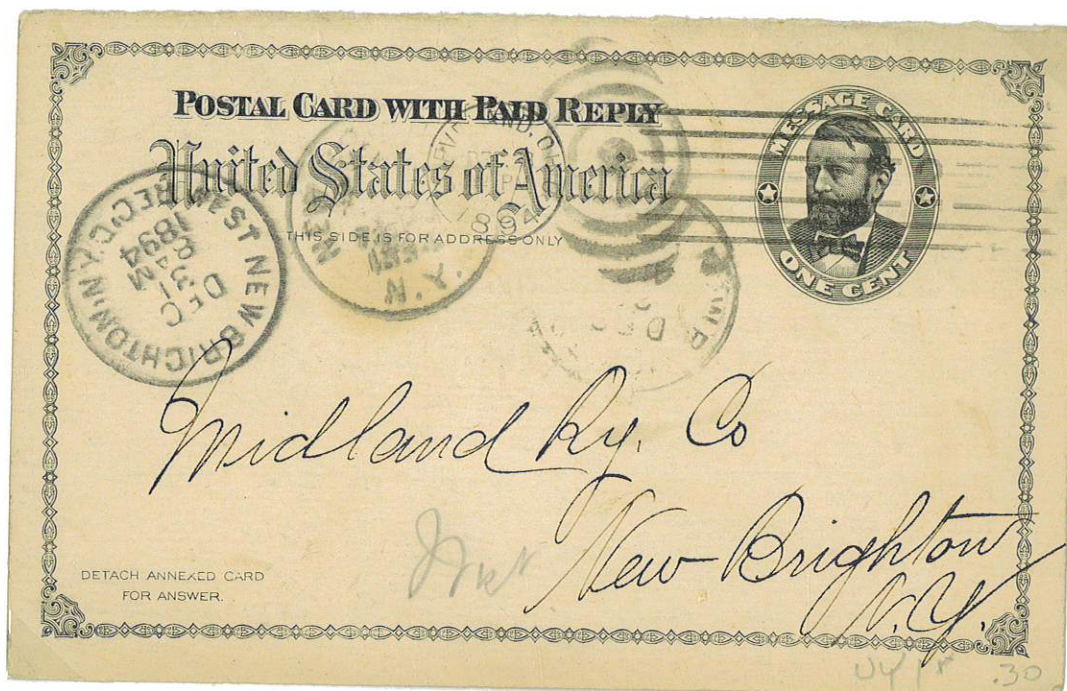 POSTAL CARD WITH PAID REPLY
United States of America
THIS SIDE IS FOR ADDRESS ONLY
MESSAGE CARD
ONE CENT
1894
WEST NEW BRIGHTON, N.Y.
REC'D.
DEC
31
8 AM
1894
N.Y.
DEC
Midland Ry. Co
New Brighton
N.Y.
DETACH ANNEXED CARD
FOR ANSWER.
.30